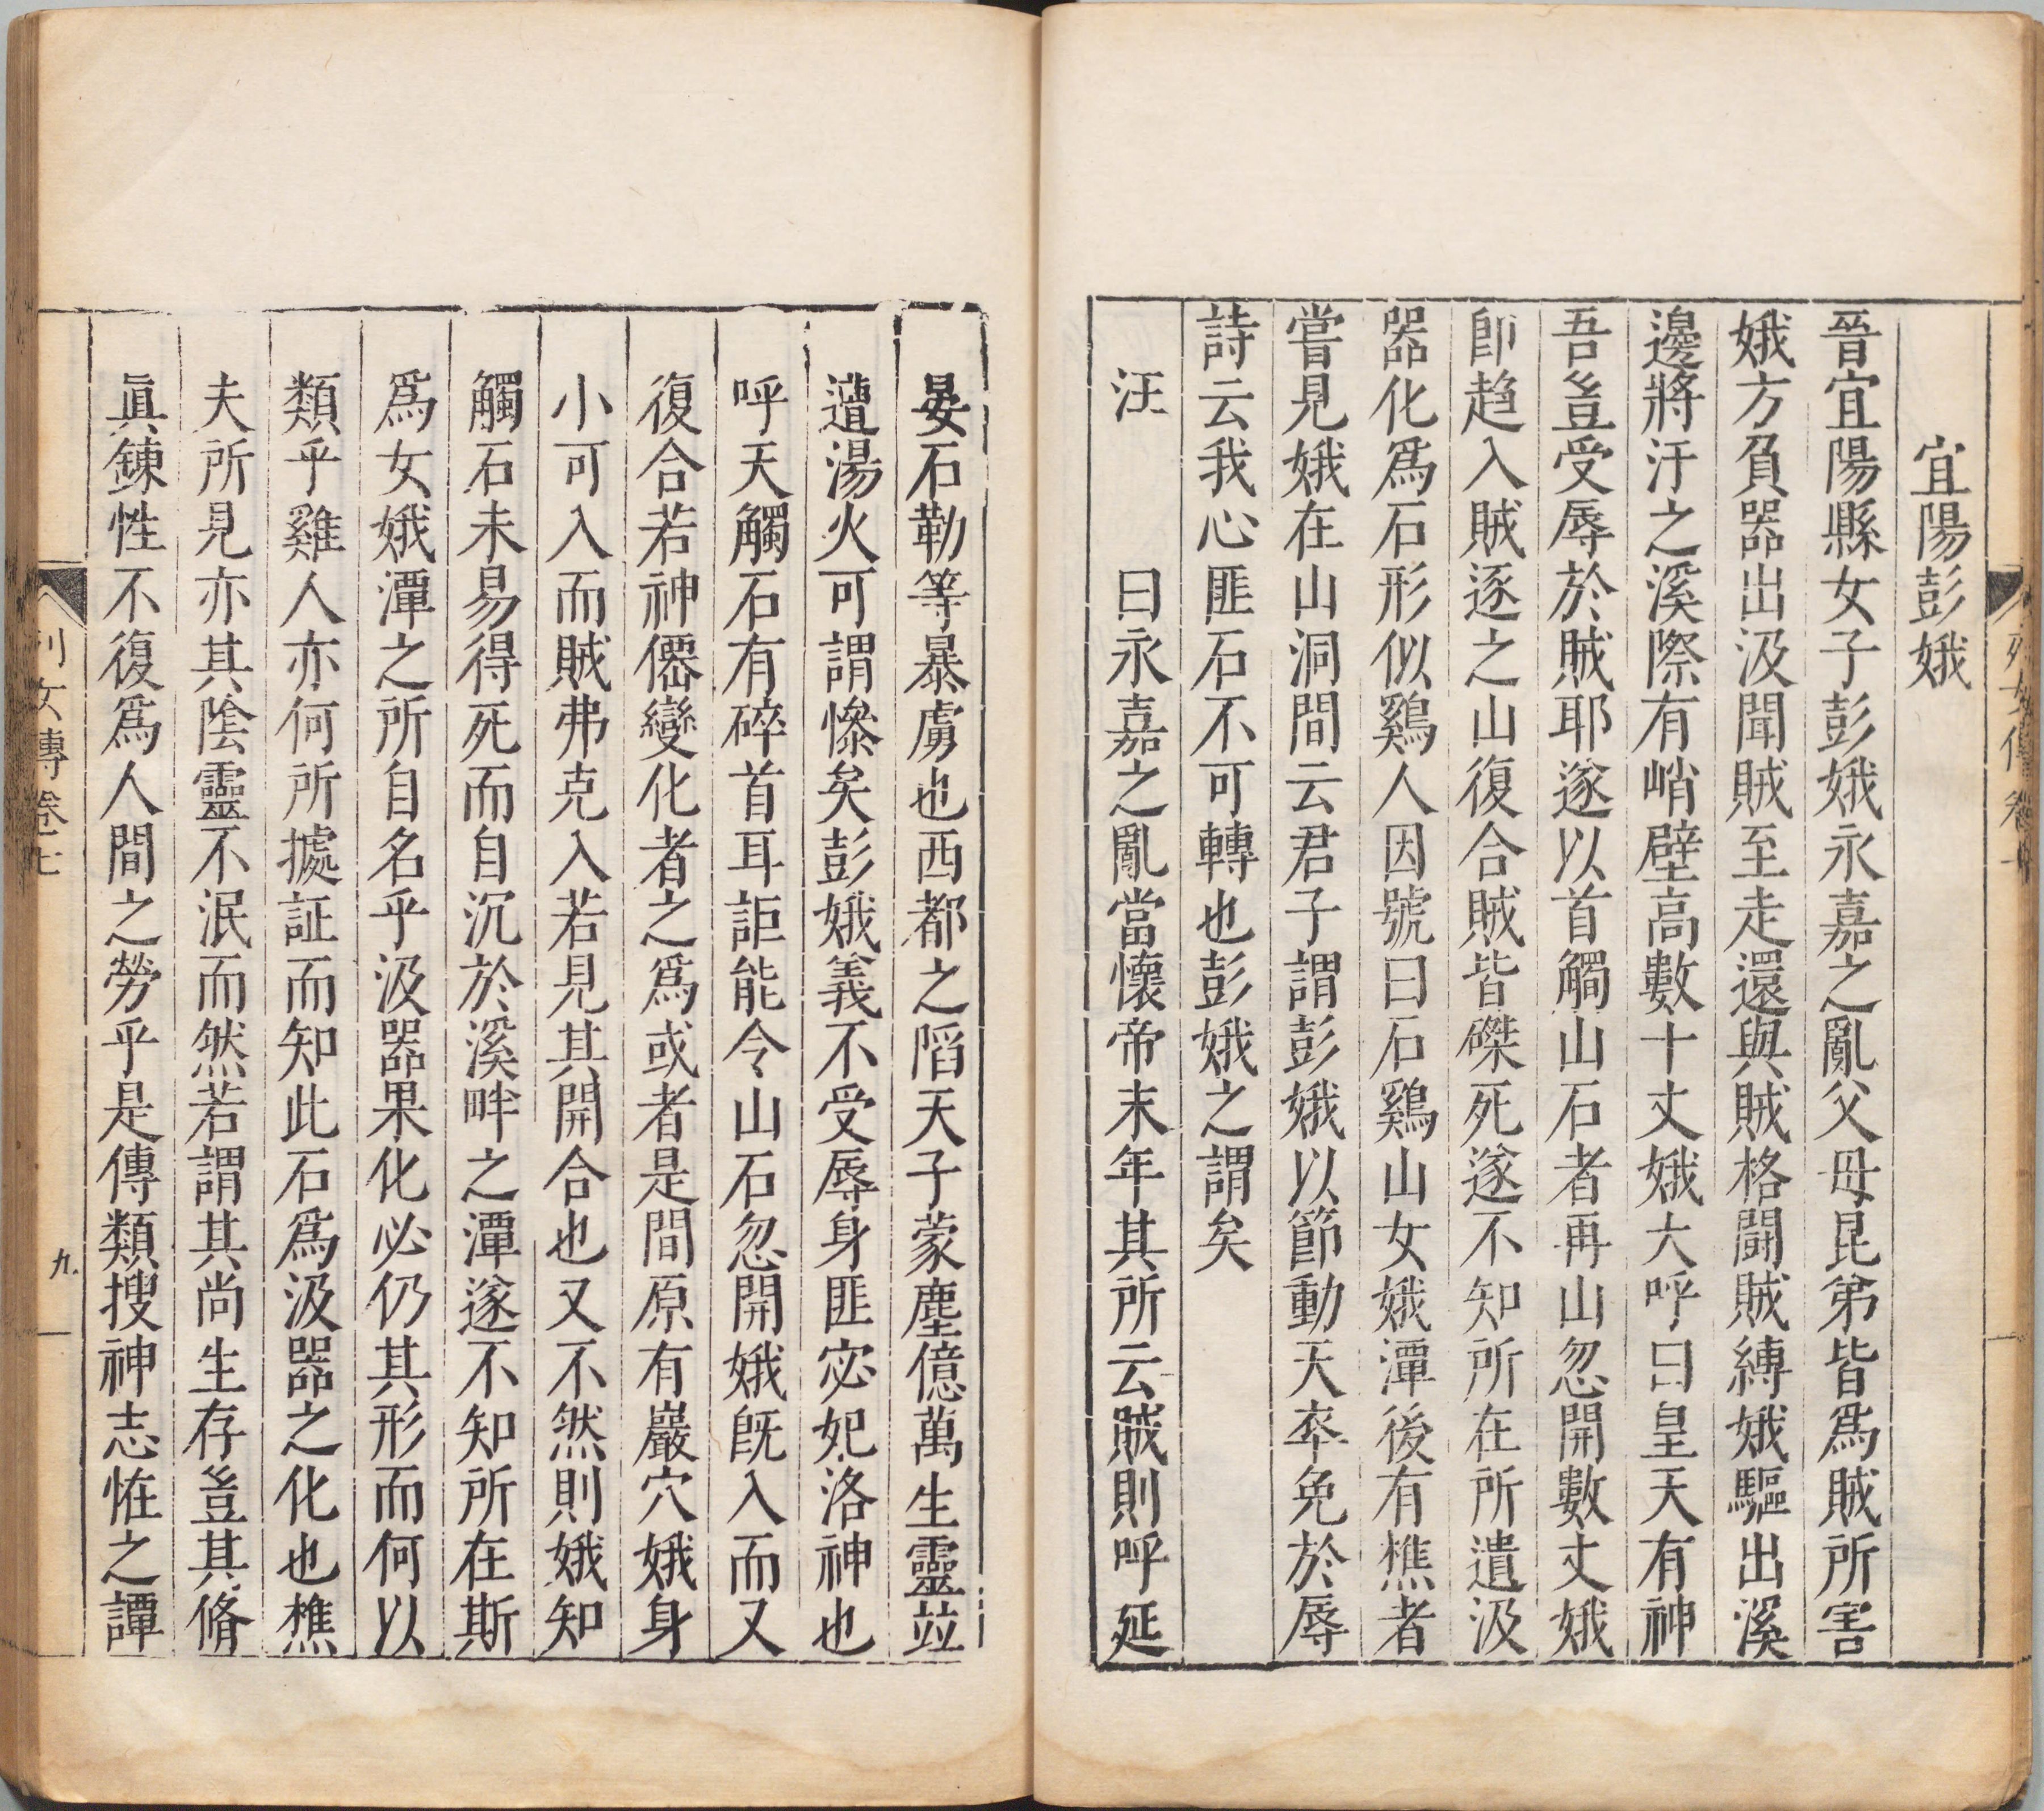 宜陽彭娥
晉宜陽縣女子彭娥永嘉之亂父母昆弟皆爲賊所害
娥方負器出汲聞賊至走還與賊格鬪賊縛娥驅出溪
邊將汙之溪際有峭壁高數十丈娥大呼曰皇天有神
吾豈受辱於賊耶遂以首觸山石者再山忽開數丈娥
卽趋入賊逐之山復合賊皆磔死遂不知所在所遺汲
器化爲石形似鷄人因號曰石鷄山女娥潭後有樵者
嘗見娥在山洞間云君子謂彭娥以節動天卒免於辱
詩云我心匪石不可轉也彭娥之謂矣
汪曰永嘉之亂當懷帝末年其所云賊則呼延
晏石勒等暴虜也西都之陷天子蒙塵億萬生靈竝
遭湯火可謂慘矣彭娥義不受辱身匪宓妃洛神也
呼天觸石有碎首耳詎能令山石忽開娥旣入而又
復合若神僊變化者之爲或者是間原有巖穴娥身
小可入而賊弗克入若見其開合也又不然則娥知
觸石未易得死而自沉於溪畔之潭遂不知所在斯
爲女娥潭之所自名乎汲器果化必仍其形而何以
類乎雞人亦何所據証而知此石爲汲器之化也樵
夫所見亦其陰靈不泯而然若謂其尚生存豈其脩
眞鍊性不復爲人間之勞乎是傳類搜神志恠之譚
列女傳卷七
九